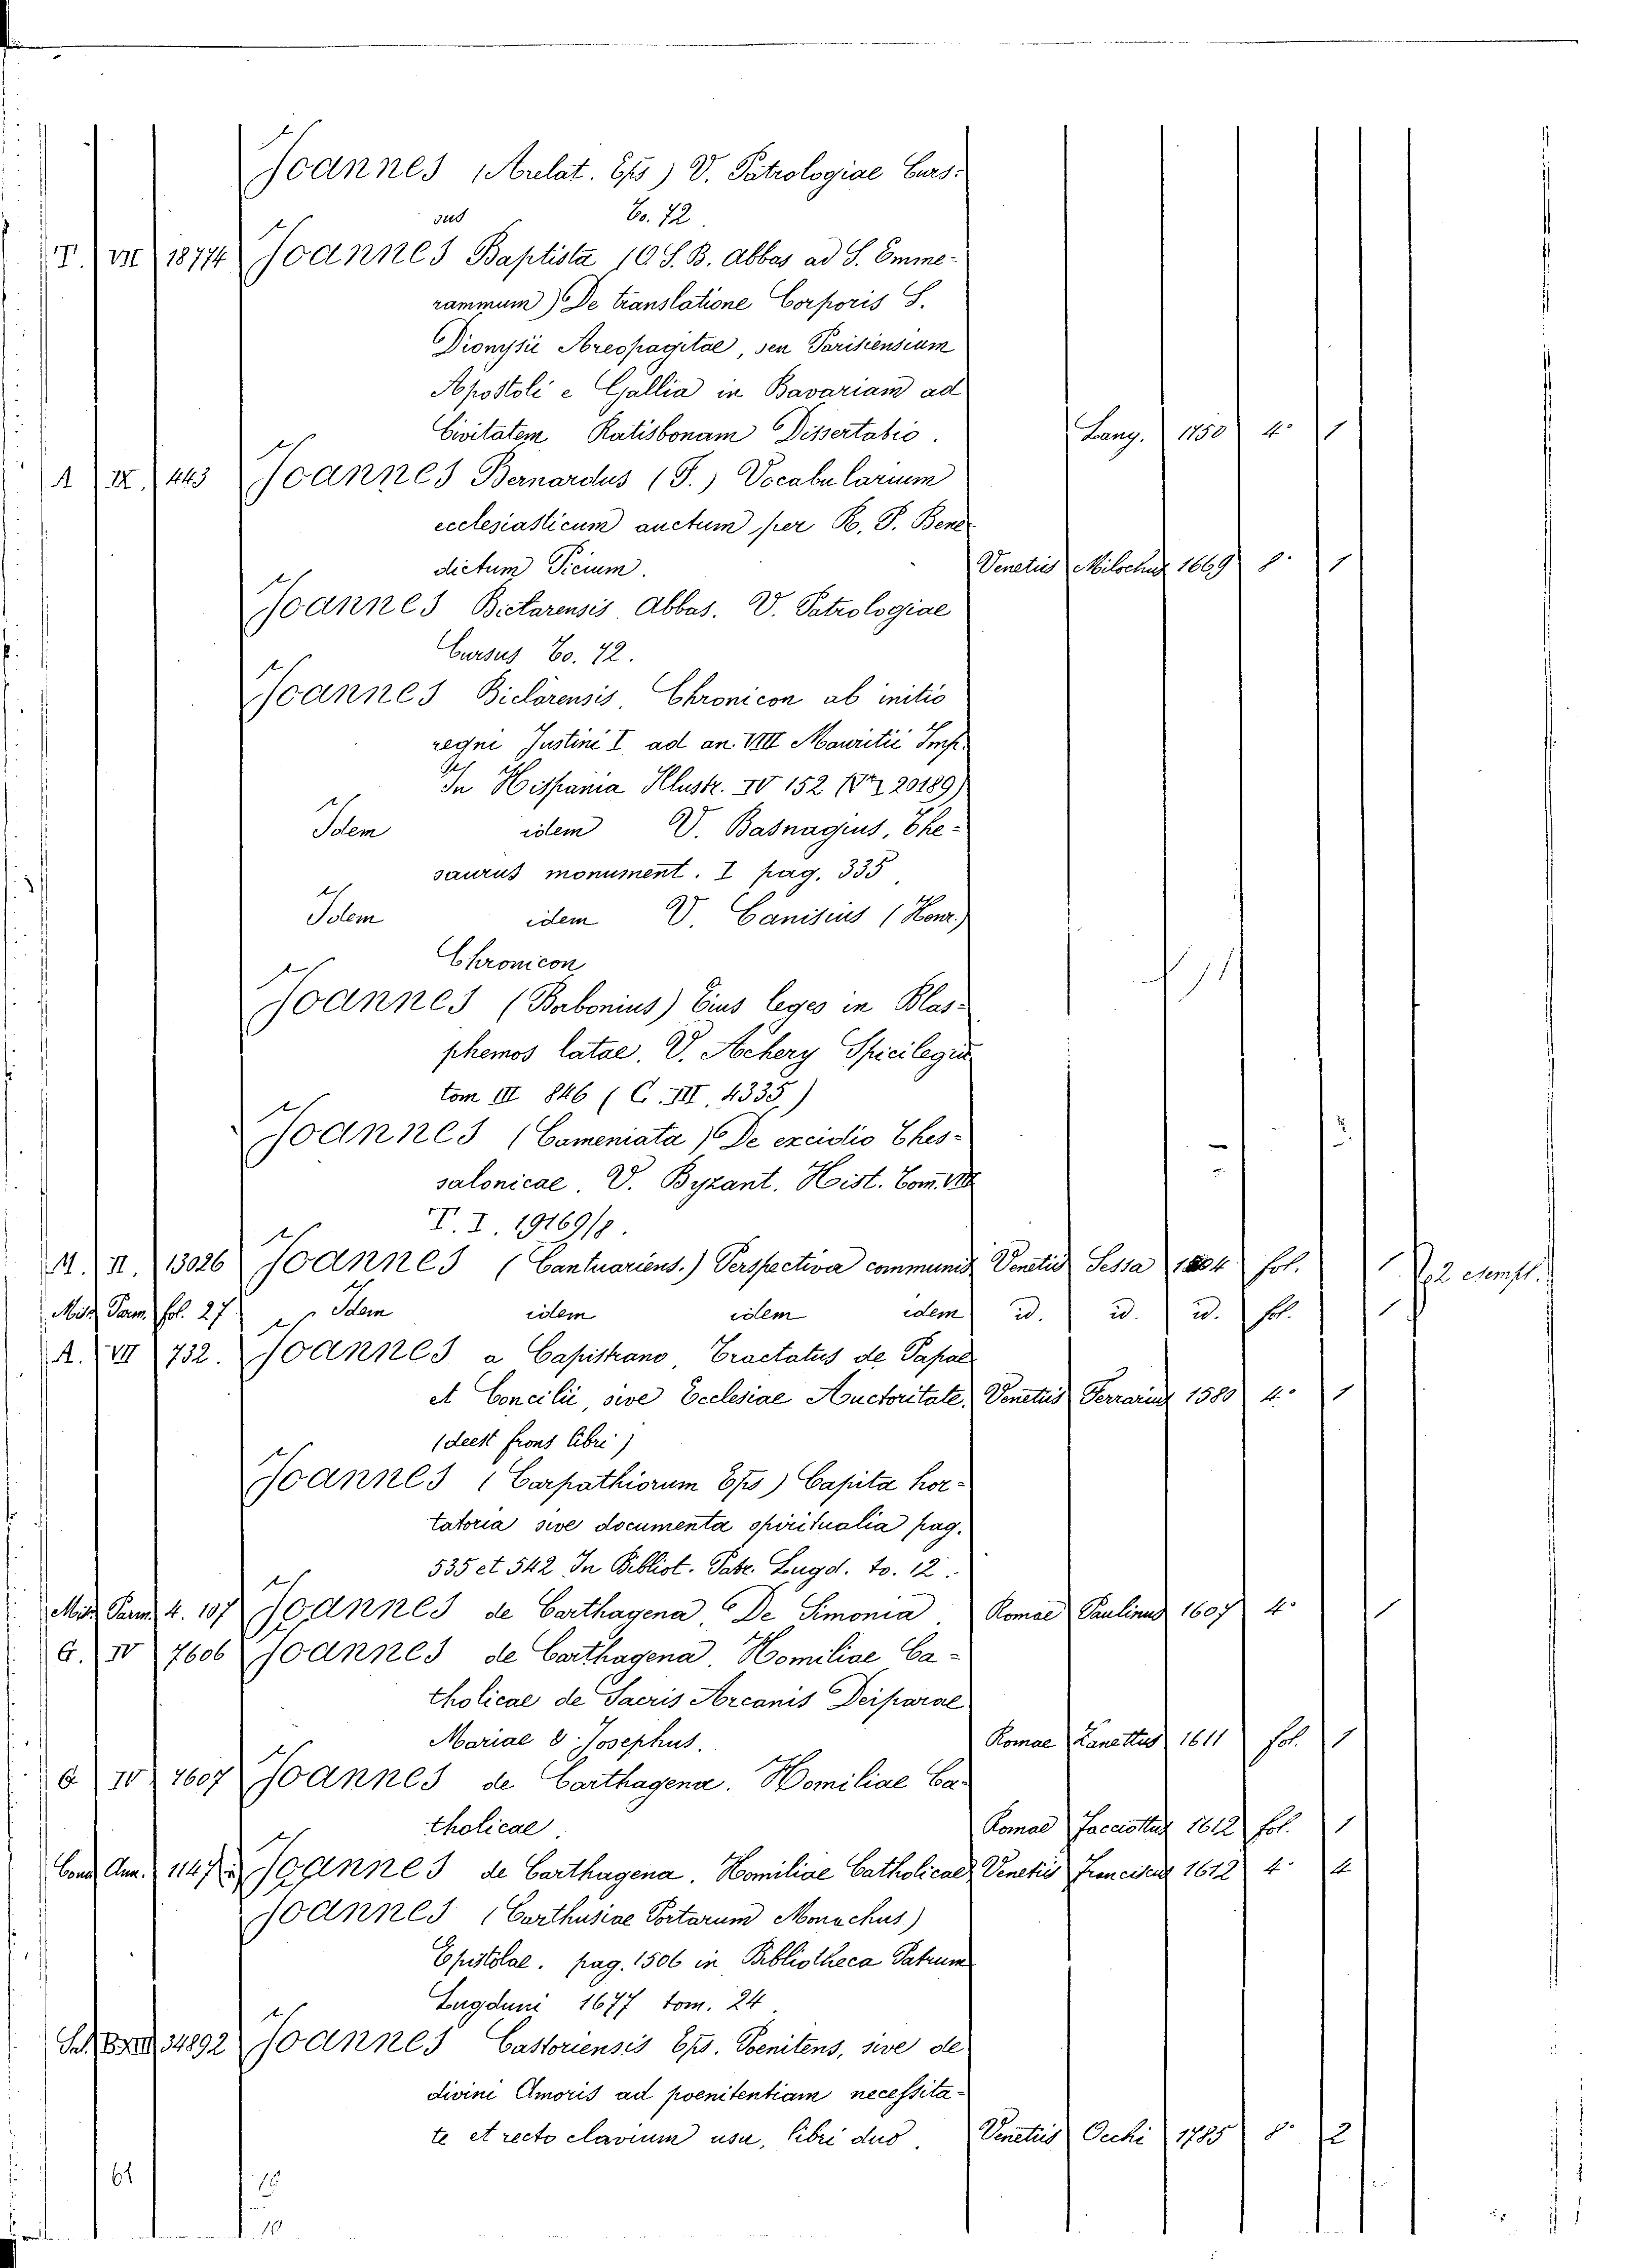 Joannes (Arelat. Eps) V. Patrologiae Curs:
sus To. 72.
T. VII 18774 Joannes Baptista (O S. B. Abbas ad S. Emme-
rammum) De translatione Corporis S.
Dionysii Areopagitae, seu Parisiensium
Apostoli e Gallia in Bavariam ad
Civitatem Ratisbonam Dissertatio. Lang. 1750 4° 1
A IX. 443 Joannes Bernardus (F.) Vocabularium
ecclesiasticum auctum per R. P. Bene-
dictum Picium. Venetiis Milochus 1669 8° 1
Joannes Biclarensis Abbas. V. Patrologiae
Cursus To. 72.
Joannes Biclarensis. Chronicon ab initio
regni Justini I. ad an. VIII Mauritii Imp.
In Hispania Illustr. IV 152 20189)
Idem idem V. Basnagius, The-
saurus monument. I pag. 335
Idem idem V. Canisius (Henr.)
Chronicon
Joannes (Babonius) Eius leges in Blas-
phemos latae. V. Achery Spicilegiu
tom III 846 (C. III. 4335.)
Joannes (Cameniata) De excidio Thes-
salonicae. V. Byzant. Hist. Tom. VIII
T. I. 19169/8.
M. II. 13026 Joannes (Cantuariens.) Perspectiva communis Venetiis Sessa 1504 fol. 1 2 esempl.
Misc Parm. fol. 27 Idem idem idem idem id. id. id. fol. 1
A. VII 732. Joannes a Capistrano, Tractatus de Papae
et Concilii, sive Ecclesiae Auctoritate. Venetiis Ferrarius 1580 4° 1
(deest frons libri)
Joannes (Carpathiorum Eps) Capita hor-
tatoria sive documenta spiritualia pag.
535 et 542 In Bibliot. Patr. Lugd. to. 12.
Misc Parm. 4. 107 Joannes de Carthagena, De Simonia. Romae Paulinus 1607 4° 1
G. IV 7606 Joannes de Carthagena. Homiliae Ca-
tholicae de Sacris Arcanis Deiparae
Mariae & Josephus. Romae Zanettus 1611 fol. 1
G IV 7607 Joannes de Carthagena. Homiliae Ca-
tholicae. Romae Facciottus 1612 fol. 1
Cons Ann. 1147 Joannes de Carthagena. Homiliae Catholicae Venetiis Franciscus 1612 4° 4
Joannes (Carthusiae Portarum Monachus)
Epistolae. pag. 1506 in Bibliotheca Patrum
Lugduni 1677 tom. 24.
34892 Joannes Castoriensis Eps. Poenitens, sive de
divini Amoris ad poenitentiam necessita-
te et recto clavium usu, libri duo. Venetiis Occhi 1785 8° 2
61 18
10